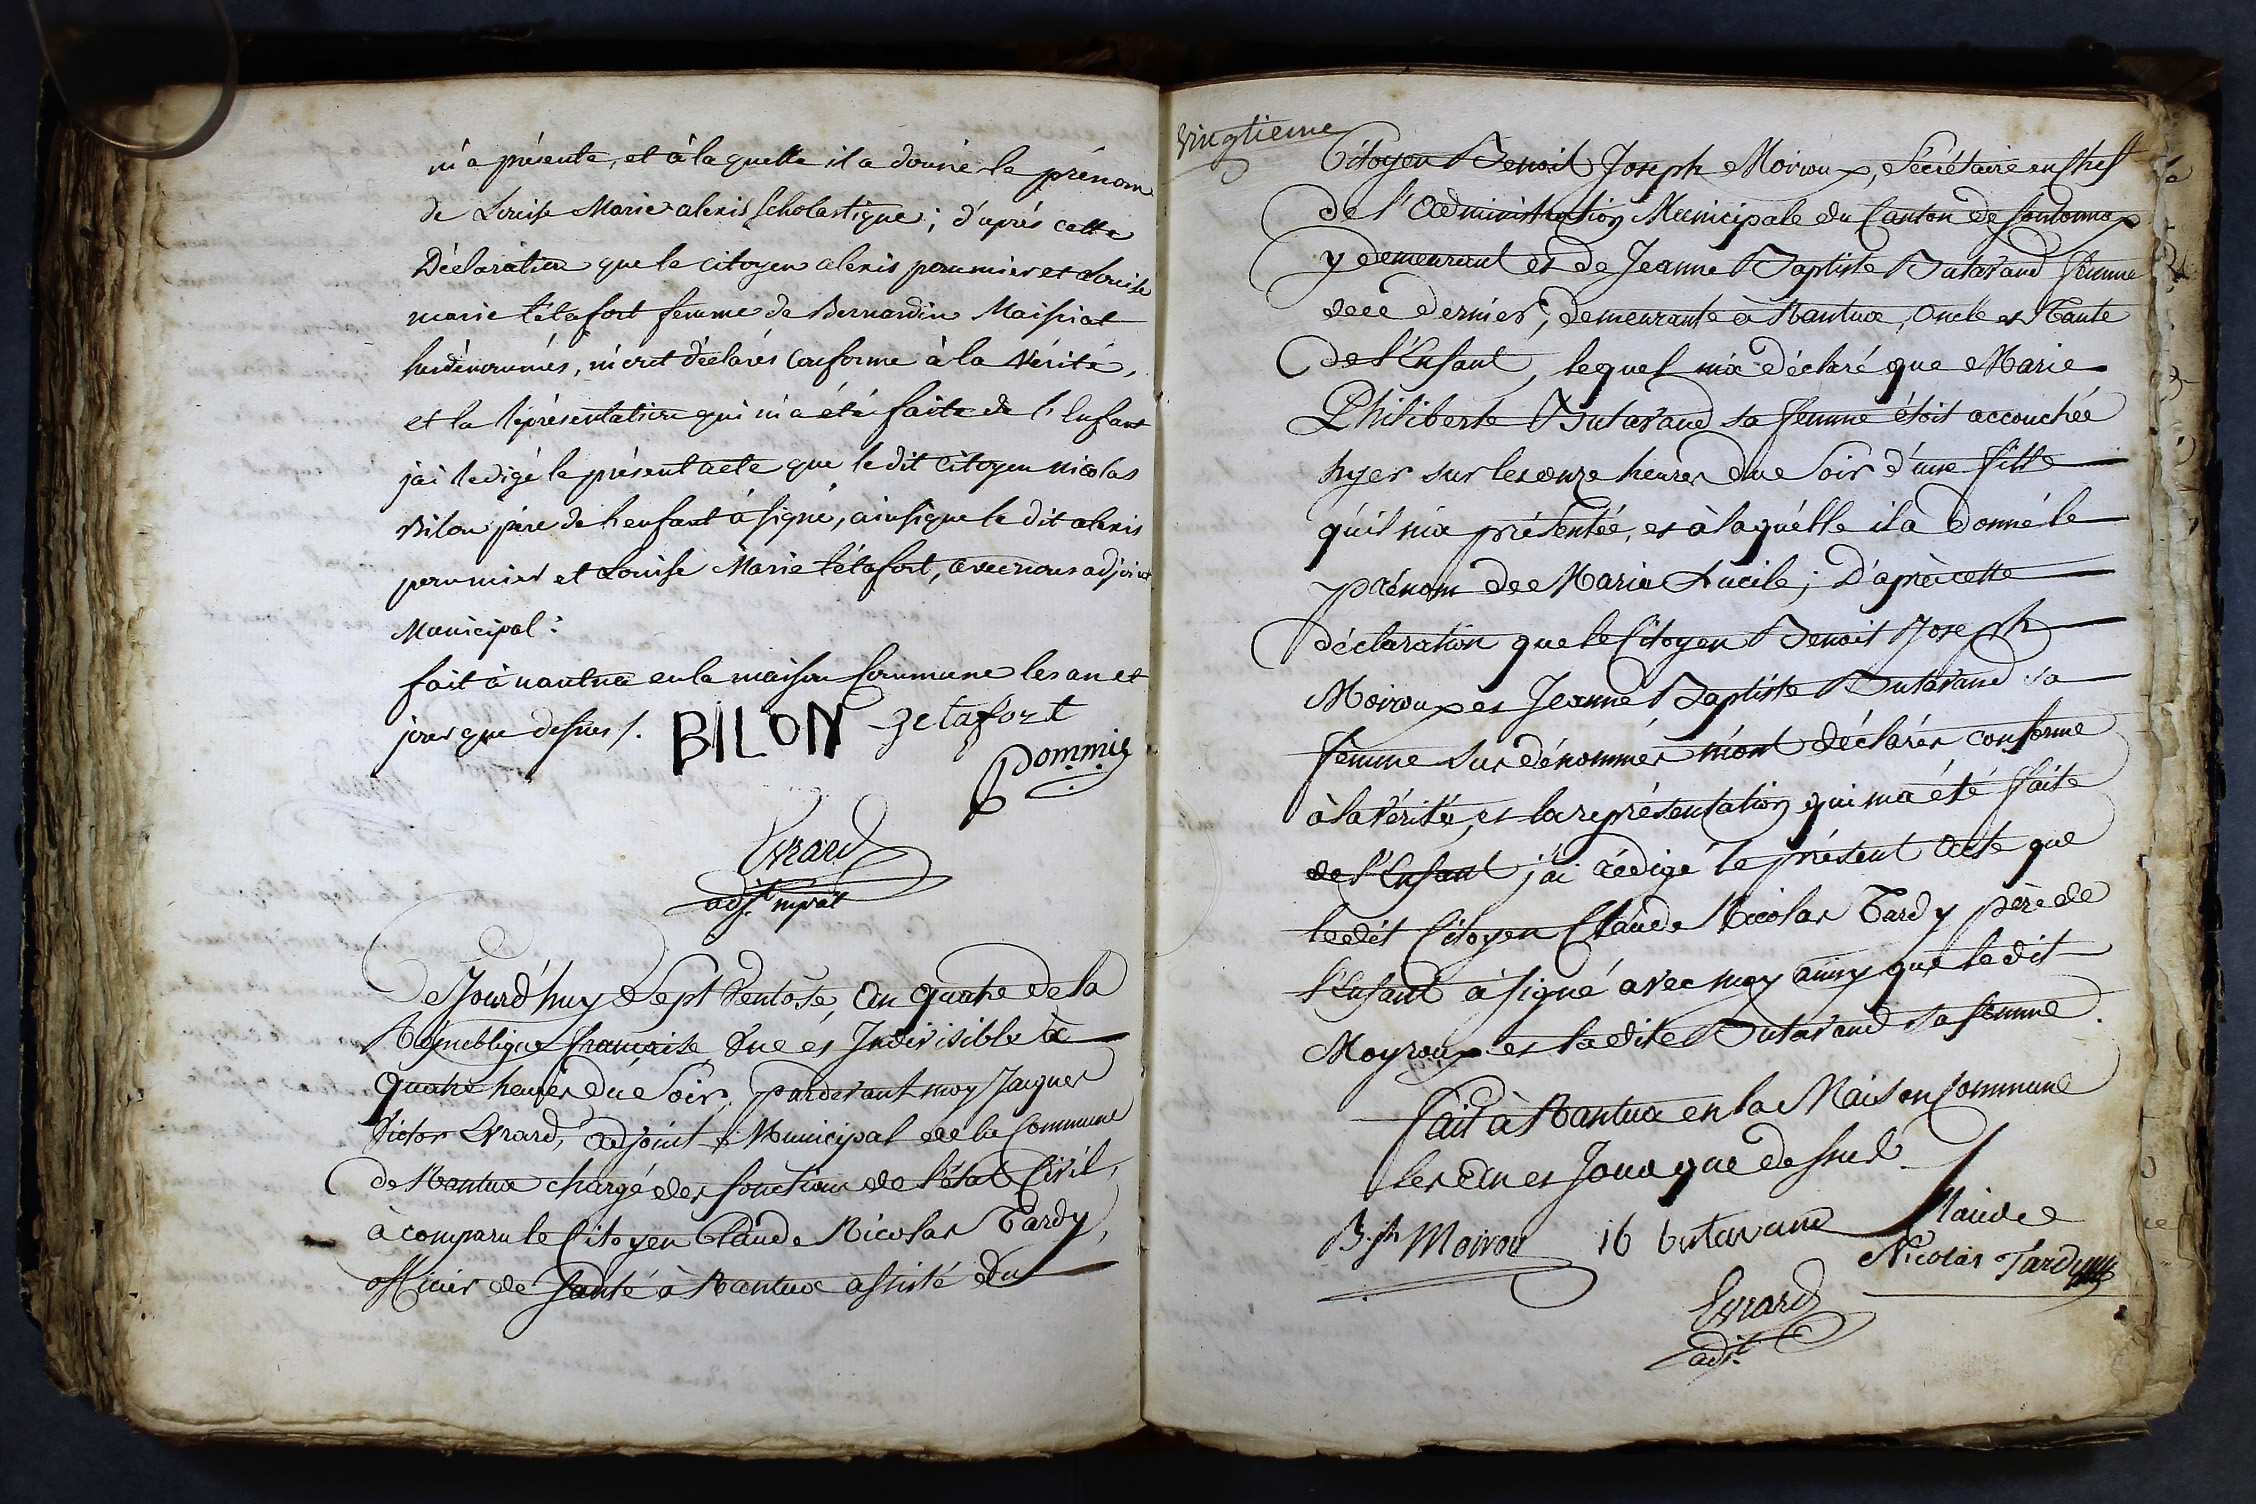 m'a présenté, et à la quelle il a donné le prénom
de Louise Marie alexis Scholastique ; d'après cette
Déclaration que le citoyen alexis pommier et Louise
marie tétafort femme de Bernardin Maissiat
susdénommés, m'ont déclarés Conforme à la Vérité,
et la représentation qui m'a été faite de l'Enfant
jai redigé le présent acte que le dit Citoyen nicolas
Bilon père de lenfant à signé, ainsi que le dit alexis
pommier et Louise Marie tétafort, avec nous adjoint
Municipal :
fait à nantua en la maison Commune les an et
jour que dessus /. BILON tetafort
Pommier
Evrard
adj.t mpal
Cejourd'huy Sept Ventose, an quatre de la
République française, Une et Indivisible à
quatre heures du Soir, pardevant moy Jacques
Victor Evrard, adjoint Municipal de la Commune
de Nantua chargé des fonctions de l'état Civil,
à comparu le Citoyen Claude Nicolas Tardy,
officier de Santé à Nantua assisté du
vingtieme
Citoyen Benoit Joseph Moiroux, Sécrétaire en Chef
de l'Administration Municipale du Canton de
y demeurant et de Jeanne Baptiste Butavand femme
de ce dernier, demeurante à Nantua, oncle et Tante
de l'Enfant, lequel m'a déclaré que Marie
Philiberte Butavand sa femme étoit accouchée
hyer sur les onze heures du Soir d'une fille
qu'il m'a présentée, et à laquelle il a donné le
prénom de Marie Lucile ; D'après cette
déclaration que le Citoyen Benoit Joseph
Moiroux et Jeanne Baptiste Butavand sa
femme sus dénommés m'ont déclarés conforme
à la Vérité, et la représentation qui m'a été faite
de l'Enfant j'ai rédigé le présent acte que
le dit Citoyen Claude Nicolas Tardy père de
l'Enfant à signé avec moy ainsy que le dit
Moyroux et la dite Butavand sa femme.
fait à Nantua en la Maison Commune
les an et Jour que dessus
B. jh Moiroux butavand Claude
Nicolas Tardy
Evrard
adj.t